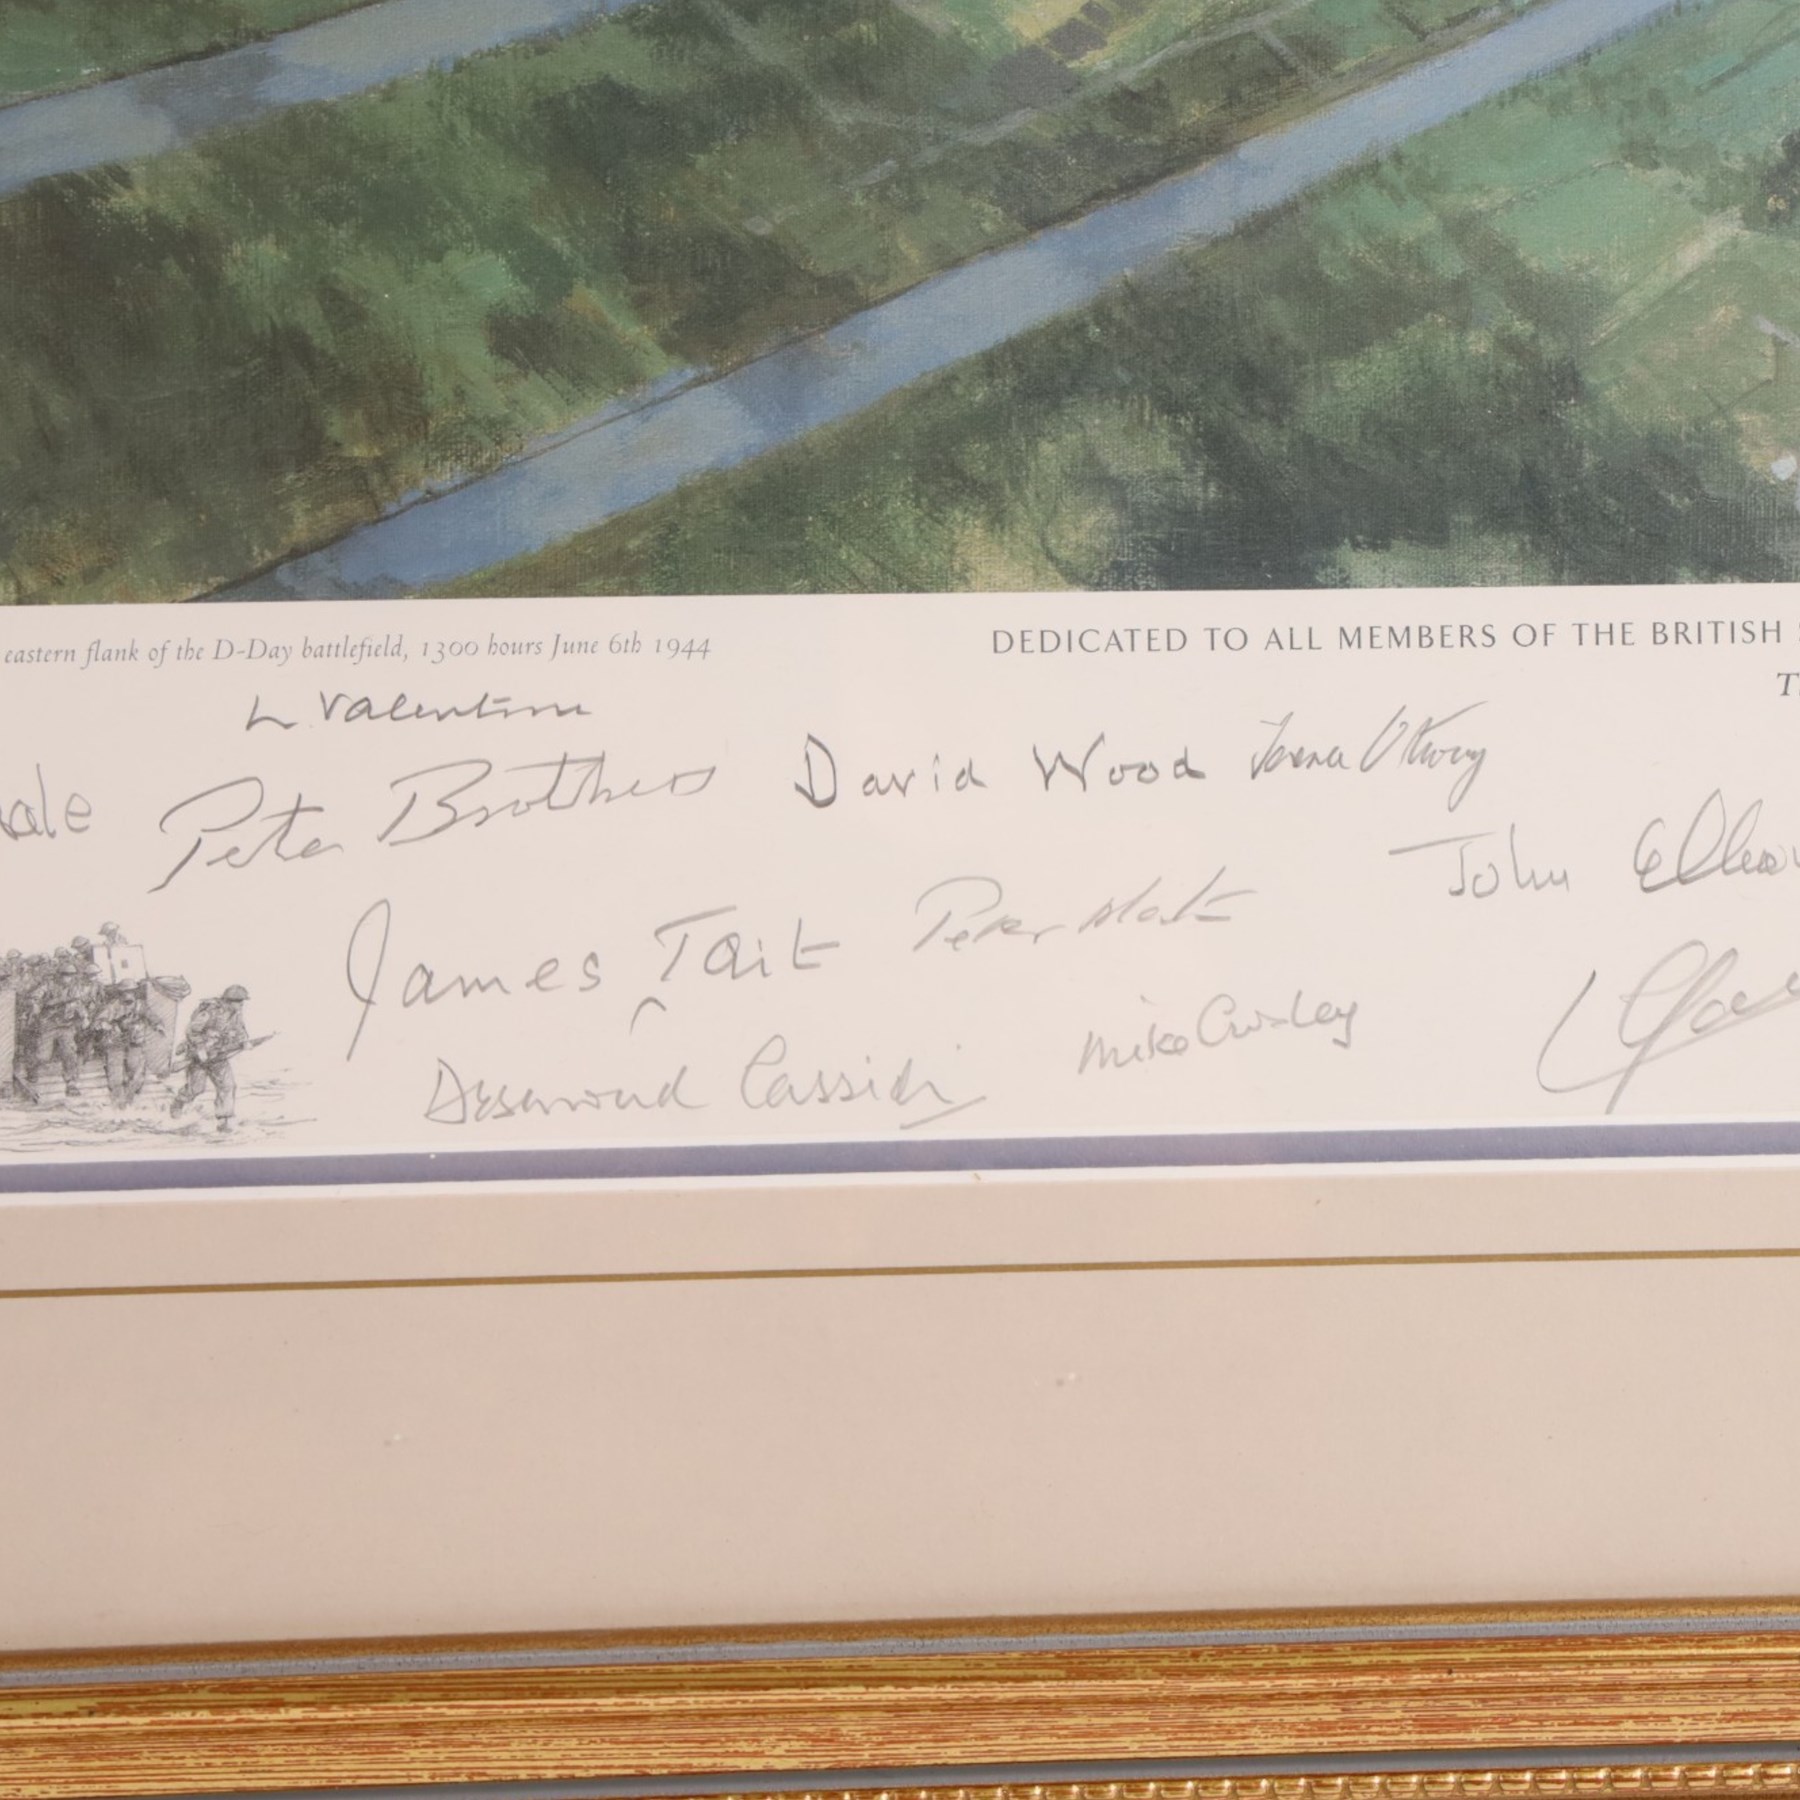 eastern flank of the D-Day battlefield, 1300 hours June 6th 1944
DEDICATED TO ALL MEMBERS OF THE BRITISH
L Valentine
Peter Brothers
David Wood
James Tait
Peter
John
Desmond Cassidi
Mike Crosley